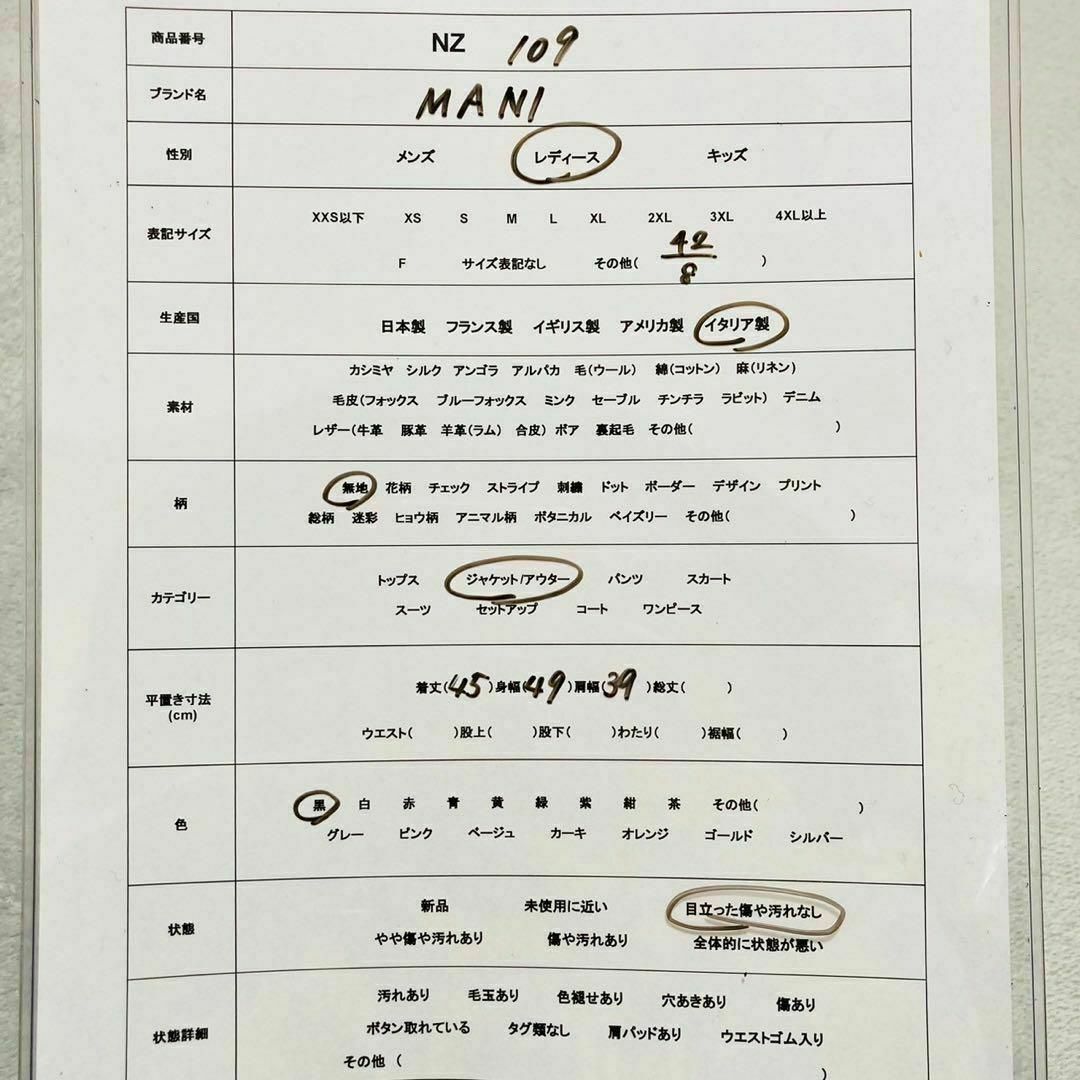 商品番号 NZ 109
ブランド名 MANI
性別 メンズ レディース キッズ
表記サイズ
XXS以下 XS S M L XL 2XL 3XL 4XL以上
F サイズ表記なし その他( 42/8 )
生産国 日本製 フランス製 イギリス製 アメリカ製 イタリア製
素材
カシミヤ シルク アンゴラ アルパカ 毛(ウール) 綿(コットン) 麻(リネン)
毛皮(フォックス ブルーフォックス ミンク セーブル チンチラ ラビット) デニム
レザー(牛革 豚革 羊革(ラム) 合皮) ボア 裏起毛 その他( )
柄
無地 花柄 チェック ストライプ 刺繍 ドット ボーダー デザイン プリント
総柄 迷彩 ヒョウ柄 アニマル柄 ボタニカル ペイズリー その他( )
カテゴリー
トップス ジャケット/アウター パンツ スカート
スーツ セットアップ コート ワンピース
平置き寸法
(cm)
着丈(45)身幅(49)肩幅(39)総丈( )
ウエスト( )股上( )股下( )わたり( )裾幅( )
色
黒 白 赤 青 黄 緑 紫 紺 茶 その他( )
グレー ピンク ベージュ カーキ オレンジ ゴールド シルバー
状態
新品 未使用に近い 目立った傷や汚れなし
やや傷や汚れあり 傷や汚れあり 全体的に状態が悪い
状態詳細
汚れあり 毛玉あり 色褪せあり 穴あきあり 傷あり
ボタン取れている タグ類なし 肩パッドあり ウエストゴム入り
その他 ( )